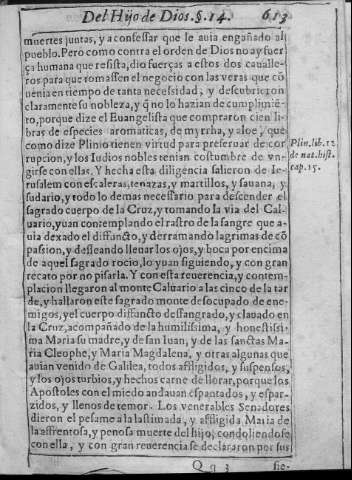 Del Hijo de Dios. §. 14. 613
muertes juntas, y a confessar que le auia engañado al
pueblo. Pero como contra el orden de Dios no ay fuer
ça humana que resista, dio fuerças a estos dos caualle-
ros para que tomassen el negocio con las veras que cō
uenia en tiempo de tanta necessidad, y descubrieron
claramente su nobleza, y q̄ no lo hazian de cumplimiē-
to, porque dize el Euangelista que compraron cien li-
bras de especies aromaticas, de myrrha, y aloe, que
como dize Plinio tienen virtud para preseruar de cor
rupcion, y los Iudios nobles tenian costumbre de vn-
girse con ellas. Y hecha esta diligencia salieron de Ie-
rusalem con escaleras, tenazas, y martillos, y sauana, y
sudario, y todo lo demas necessario para descender el
sagrado cuerpo de la Cruz, y tomando la via del Cal-
uario, yuan contemplando el rastro de la sangre que a-
uia dexado el diffuncto, y derramando lagrimas de cō
passion, y desseando lleuar los ojos, y boca por encima
de aquel sagrado rocio, lo yuan siguiendo, y con gran
recato por no pisarla. Y con esta reuerencia, y contem-
placion llegaron al monte Caluario a las cinco de la tar
de, y hallaron este sagrado monte desocupado de ene-
migos, y el cuerpo diffuncto desangrado, y clauado en
la Cruz, acompañado de la humilissima, y honestissi-
ma Maria su madre, y de san Iuan, y de las sanctas Ma-
ria Cleophe, y Maria Magdalena, y otras algunas que
auian venido de Galilea, todos affligidos, y suspensos,
y los ojos turbios, y hechos carne de llorar, porque los
Apostoles con el miedo andauan espantados, y espar-
zidos, y llenos de temor. Los venerables Senadores
dieron el pesame a la lastimada, y affligida Maria de
la affrentosa, y penosa muerte del hijo, condoliendose
con ella, y con gran reuerencia se declararon por sus
Qq 3 sie-
Plin. lib. 12
de nat. hist.
cap. 15.